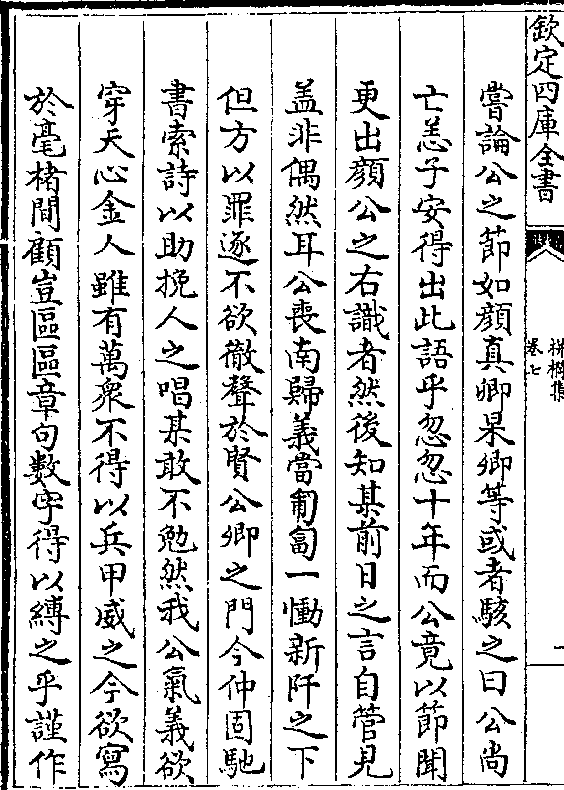 欽定四庫全書
栟櫚集
卷七
一
嘗論公之節如顏真卿杲卿等或者駭之曰公尚
亡恙子安得出此語乎忽忽十年而公竟以節聞
更出顏公之右識者然後知某前日之言自管見
葢非偶然耳公喪南歸義當匍匐一慟新阡之下
但方以罪逐不欲徹聲於賢公卿之門今仲固馳
書索詩以助挽人之唱某敢不勉然我公氣義欲
穿天心金人雖有萬衆不得以兵甲威之今欲寫
於毫楮間顧豈區區章句數字得以縛之乎謹作